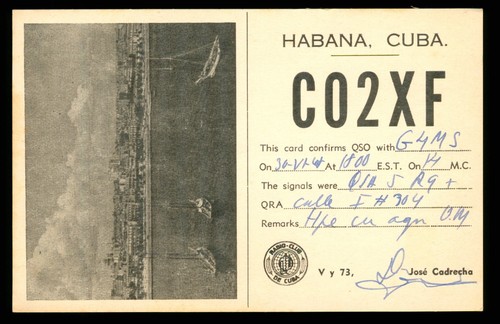 HABANA, CUBA.
CO2XF
This card confirms QSO with G4MS
On At 1800 E.S.T. On 14 M.C.
The signals were QSA 5 R9+
QRA calle I # 304
Remarks Hpe cu agn O.M
RADIO-CLUB
DE CUBA
V y 73, José Cadrecha